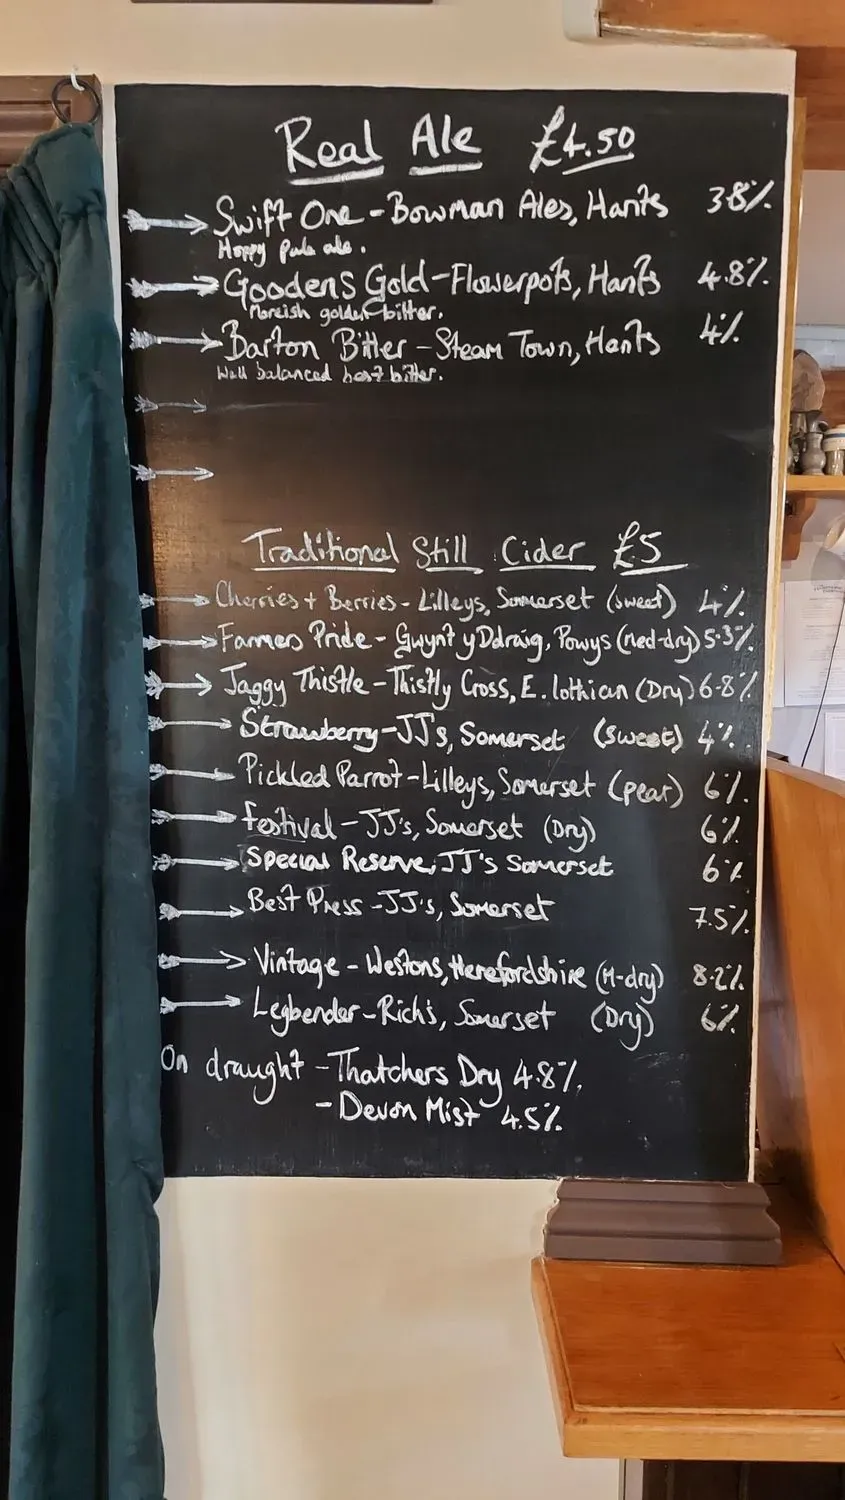 Real Ale £4.50
Swift One - Bowman Ales, Hants 3.8%
Hoppy pale ale.
Goodens Gold - Flowerpots, Hants 4.8%
Moreish golden bitter.
Barton Bitter - Steam Town, Hants 4%
Well balanced best bitter.
Traditional Still Cider £5
Cherries + Berries - Lilleys, Somerset (sweet) 4%
Farmers Pride - Gwynt y Ddraig, Powys (med-dry) 5.3%
Jaggy Thistle - Thistly Cross, E. lothian (Dry) 6.8%
Strawberry - JJ's, Somerset (sweet) 4%
Pickled Parrot - Lilleys, Somerset (pear) 6%
Festival - JJ's, Somerset (Dry) 6%
Special Reserve, JJ's Somerset 6%
Best Press - JJ's, Somerset 7.5%
Vintage - Westons, Herefordshire (M-dry) 8.2%
Legbender - Rich's, Somerset (Dry) 6%
On draught - Thatchers Dry 4.8%
- Devon Mist 4.5%